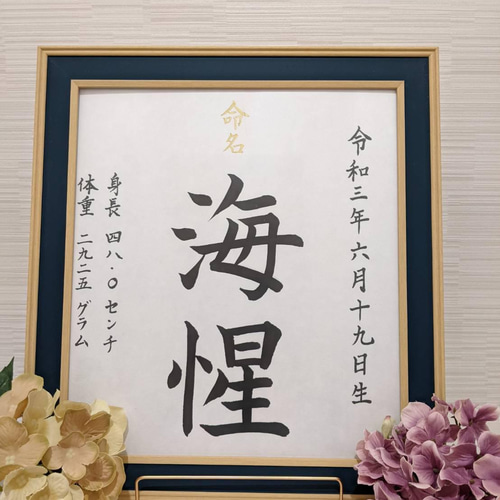 令和三年六月十九日生
命名
海惺
身長 四八・〇 センチ
体重 二九二五 グラム